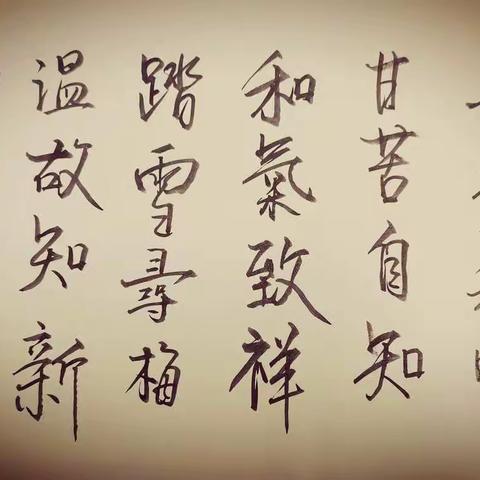 甘苦自知
和氣致祥
踏雪尋梅
温故知新